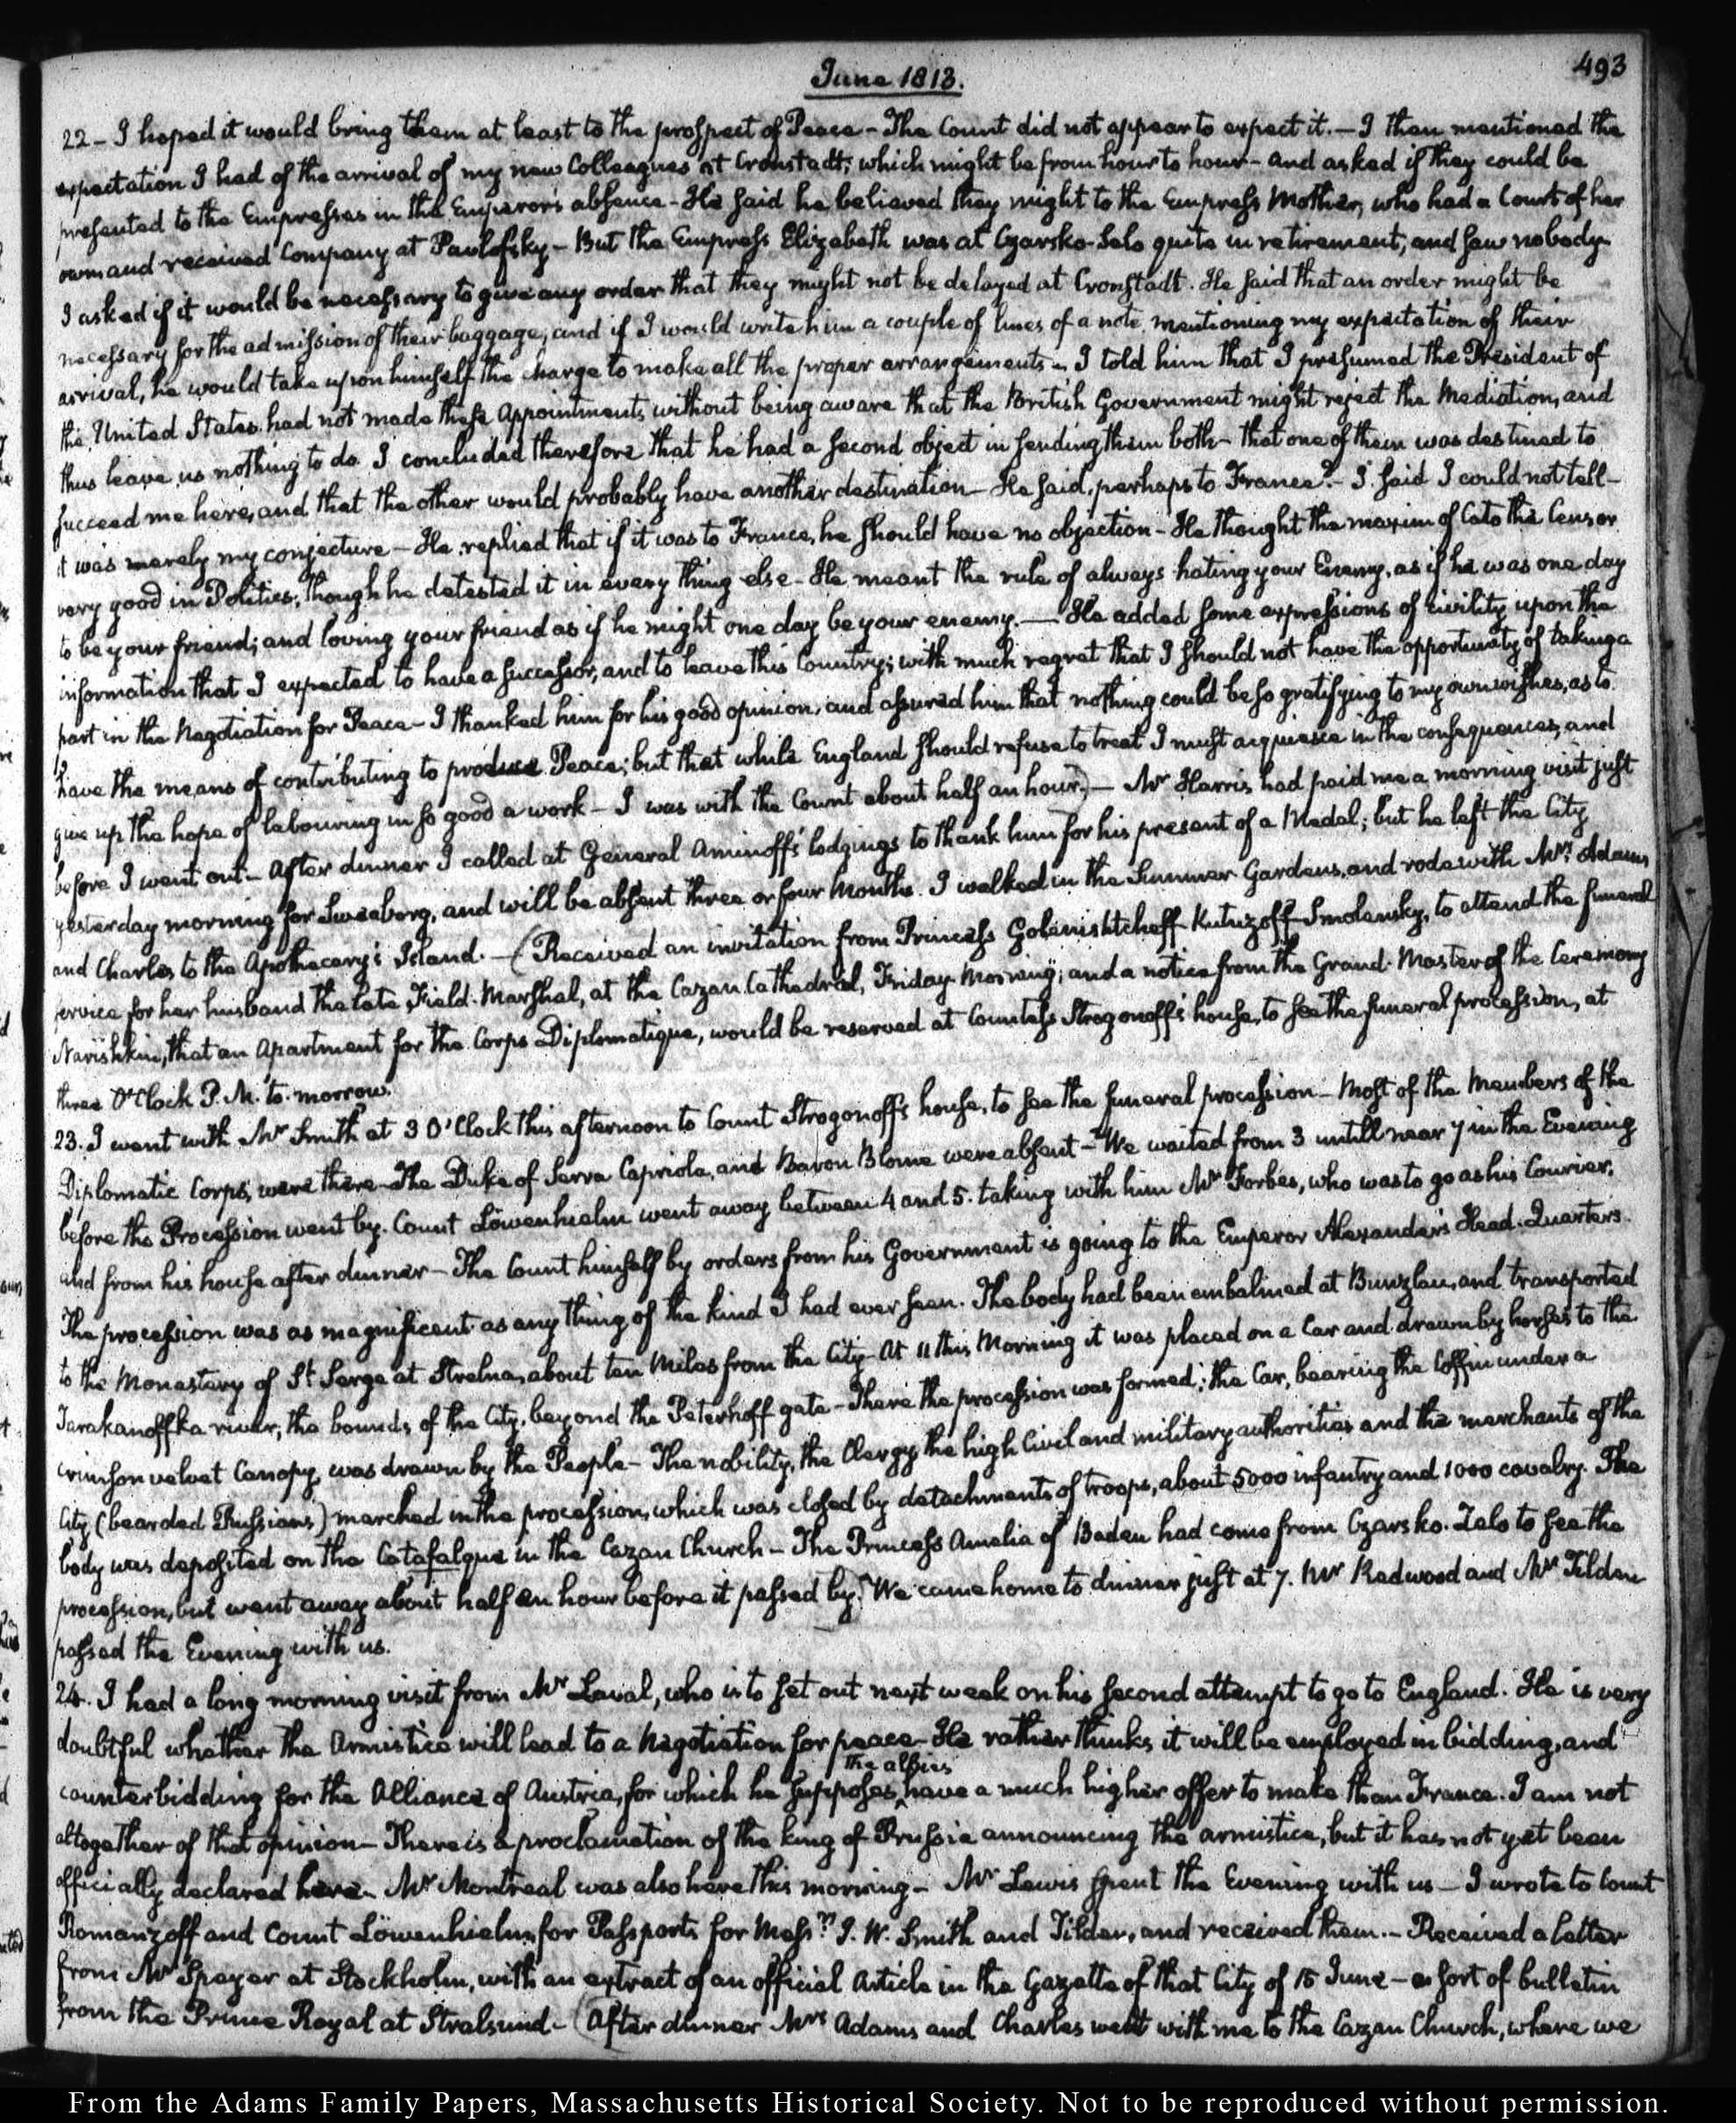 June 1813.
493
22 – I hoped it would bring them at least to the prospect of Peace – The Count did not appear to expect it. – I then mentioned the
expectation I had of the arrival of my new Colleagues at Cronstadt; which might be from hour to hour – and asked if they could be
presented to the Empresses in the Emperor's absence – He said he believed they might to the Empress Mother, who had a Court of her
own and received Company at Pavlofsky – But the Empress Elizabeth was at Czarsko-Selo quite in retirement, and saw nobody.
I asked if it would be necessary to give any order that they might not be delayed at Cronstadt. He said that an order might be
necessary for the admission of their baggage, and if I would write him a couple of lines of a note, mentioning my expectation of their
arrival, he would take upon himself the charge to make all the proper arrangements – I told him that I presumed the President of
the United States had not made these Appointments, without being aware that the British Government might reject the Mediation, and
thus leave us nothing to do. I concluded therefore that he had a second object in sending them both – that one of them was destined to
succeed me here, and that the other would probably have another destination – He said, perhaps to France? – I said I could not tell –
it was merely my conjecture – He replied that if it was to France, he should have no objection – He thought the maxim of Cato the Censor
very good in Politics, though he detested it in every thing else – He meant the rule of always hating your Enemy, as if he was one day
to be your friend; and loving your friend as if he might one day be your enemy. – He added some expressions of civility upon the
information that I expected to have a successor, and to leave this Country; with much regret that I should not have the opportunity of taking a
part in the Negotiation for Peace – I thanked him for his good opinion, and assured him that nothing could be so gratifying to my own wishes, as to
have the means of contributing to produce Peace; but that while England should refuse to treat I must acquiesce in the consequences, and
give up the hope of labouring in so good a work – I was with the Count about half an hour.) – Mr Harris had paid me a morning visit just
before I went out – After dinner I called at General Aminoff's lodgings to thank him for his present of a Medal; but he left the City
yesterday morning for Sweaborg, and will be absent three or four Months. I walked in the Summer Gardens, and rode with Mrs Adams
and Charles to the Apothecary's Island. – (Received an invitation from Princess Golenishtcheff-Kutuzoff-Smolensky, to attend the funeral
service for her husband the late Field-Marshal, at the Cazan Cathedral, Friday Morning; and a notice from the Grand-Master of the Ceremony
Narishkin, that an Apartment for the Corps Diplomatique, would be reserved at Countess Strogonoff's house, to see the funeral procession, at
three O'Clock P.M. to-morrow.
23. I went with Mr Smith at 3 O'Clock this afternoon to Count Strogonoff's house, to see the funeral procession – Most of the Members of the
Diplomatic Corps, were there – The Duke of Serra Capriola, and Baron Blome were absent – We waited from 3 untill near 7 in the Evening
before the Procession went by. Count Löwenhielm went away between 4 and 5. taking with him Mr Forbes, who was to go as his Courier,
and from his house after dinner – The Count himself by orders from his Government is going to the Emperor Alexander's Head-Quarters.
The procession was as magnificent as any thing of the kind I had ever seen. The body had been embalmed at Bunzlau, and transported
to the Monastery of St Serge at Strelna, about ten Miles from the City – At 11 this Morning it was placed on a Car and drawn by horses to the
Tarakanoffka river, the bounds of the City, beyond the Peterhoff gate – There the procession was formed; the Car, bearing the Coffin under a
crimson velvet Canopy, was drawn by the People – The nobility, the Clergy, the high Civil and military authorities and the merchants of the
City (bearded Russians) marched in the procession, which was closed by detachments of troops, about 5000 infantry and 1000 cavalry. The
body was deposited on the Catafalque in the Cazan Church – The Princess Amelia of Baden had come from Czarsko-Zelo to see the
procession, but went away about half an hour before it passed by. We came home to dinner just at 7. Mr Redwood and Mr Tilden
passed the Evening with us.
24. I had a long morning visit from Mr Laval, who is to set out next week on his second attempt to go to England. He is very
doubtful whether the Armistice will lead to a Negotiation for peace – He rather thinks it will be employed in bidding, and
the allies
counterbidding for the Alliance of Austria, for which he supposes have a much higher offer to make than France. I am not
altogether of that opinion – There is a proclamation of the king of Prussia announcing the armistice, but it has not yet been
officially declared here – Mr Montreal was also here this morning – Mr Lewis spent the Evening with us – I wrote to Count
Romanzoff and Count Löwenhielm, for Passports for Messrs J. W. Smith and Tilden, and received them. – Received a letter
from Mr Speyer at Stockholm, with an extract of an official Article in the Gazette of that City of 15 June – a sort of bulletin
from the Prince Royal at Stralsund – (After dinner Mrs Adams and Charles went with me to the Cazan Church, where we
From the Adams Family Papers, Massachusetts Historical Society. Not to be reproduced without permission.